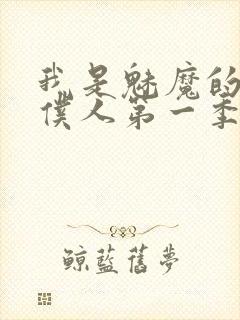 我是魅魔的
僕人第一季
鲸蓝舊夢